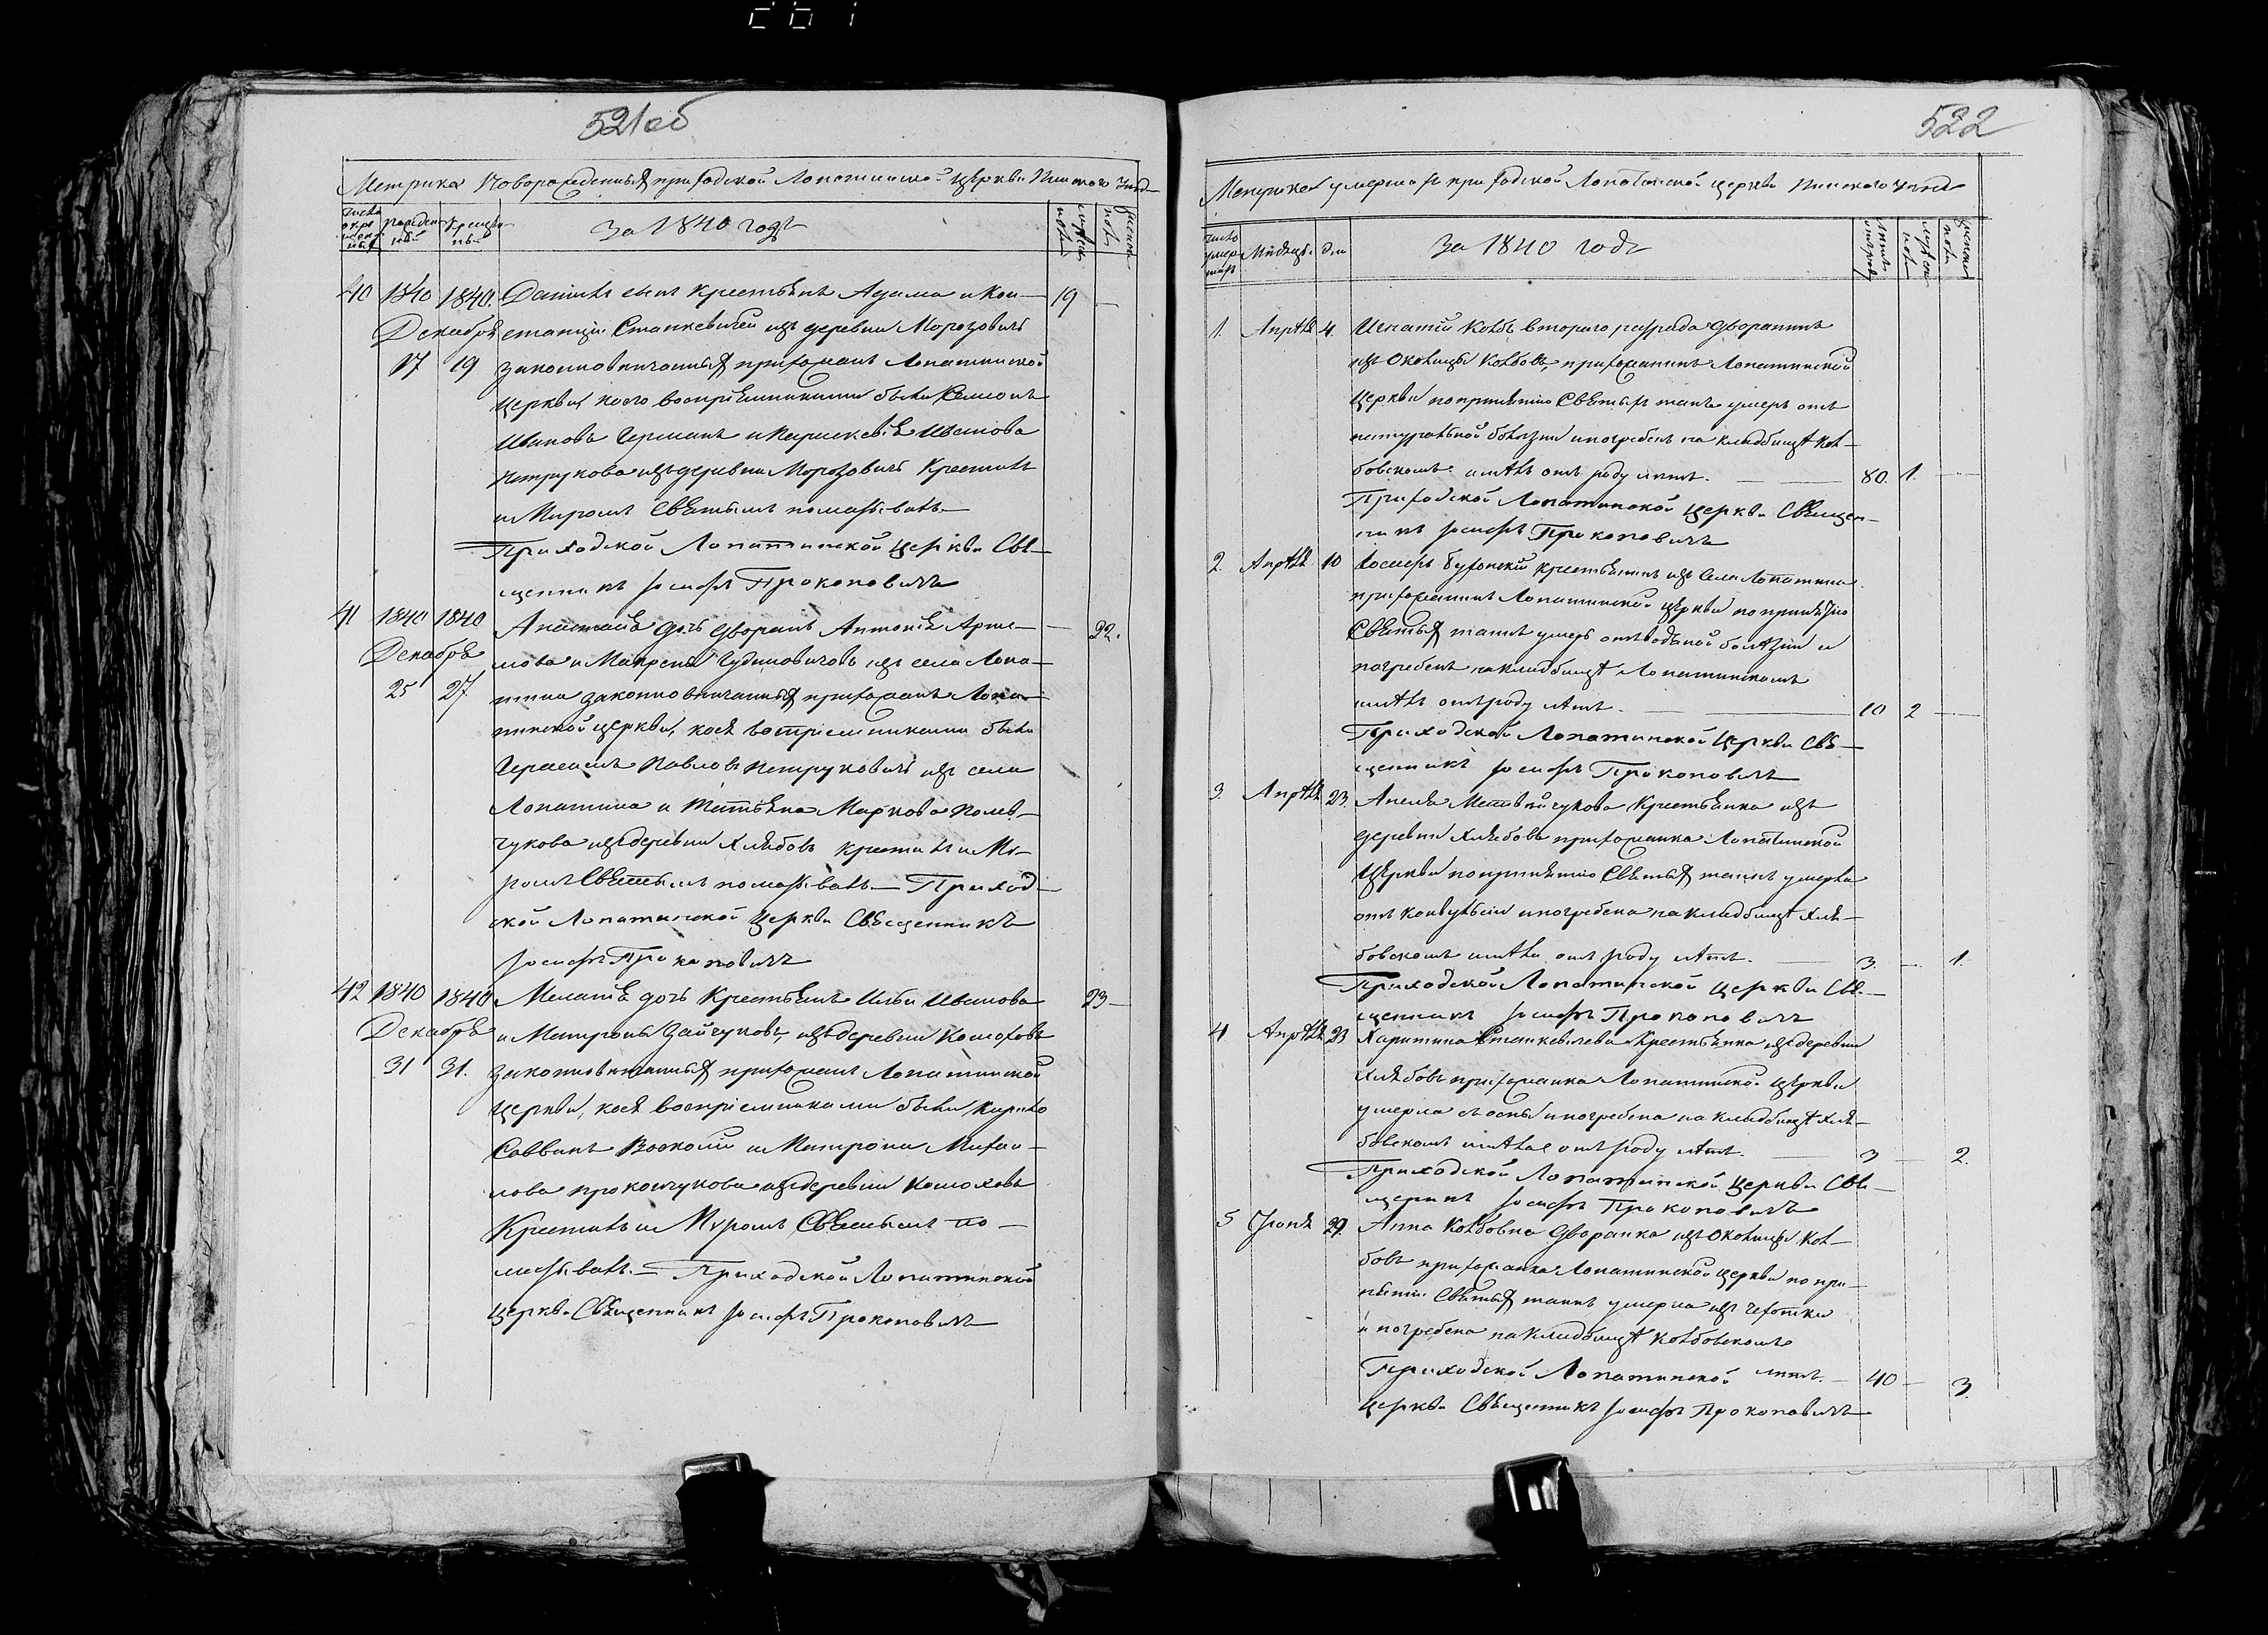 521об
Метрика Новорожденныхъ приходской Лопатинской Церкви Пинского
За 1840 годъ
40 1840 1840. Даніилъ сынъ крестьянъ Адама и Кон- 19 —
Декабря станціи Станкевичей изъ деревни Морозовичъ
17 19 законновѣнчанныхъ прихожанъ Лопатинской
Церкви, коего воспріемниками были Семіонъ
Ивановъ Германъ и Параскевія Иванова
Петрукова изъ деревни Морозовичъ Крестилъ
и Миромъ Святымъ помазывалъ
Приходской Лопатинской Церкви Свя-
щенникъ Іосифъ Прокоповичъ
41 1840 1840 Анастасія дочь Дворянъ Антонія — 22.
Декабря мова и Макрены изъ села Лопа-
25 27 тина законновѣнчанныхъ прихожанъ Лопа-
тинской церкви, коея воспріемниками были
Герасимъ Павловъ Петруковичъ изъ села
Лопатина и Татьяна Маркова
чукова изъ деревни Хлябовъ крестилъ и Ми-
ромъ Святымъ помазывалъ — Приход-
ской Лопатинской Церкви Священникъ
Іосифъ Прокоповичъ
42 1840 1840 Меланія дочь Крестьянъ Ильи Иванова 23 —
Декабря и Матроны Зайчуковъ, изъ деревни
31 31. законновѣнчанныхъ прихожанъ Лопатинской
Церкви, коея воспріемниками были Кирило
Саввинъ и Матрона Михаи-
лова Прокопчукова изъ деревни
Крестилъ и Мѵромъ Святымъ по-
мазывалъ. — Приходской Лопатинской
Церкви Священникъ Іосифъ Прокоповичъ
522
Метрика умершихъ приходской Лопатинской церкви Пинского
Мѣсяцъ. дни За 1840 годъ
1. Апрѣля 4. Игнатій Колбъ втораго разряда дворянинъ
изъ Околицы Колбовъ, прихожанинъ Лопатинской
Церкви по принятію Святыхъ таинъ умеръ отъ
натуральной болѣзни и погребенъ на кладбищѣ Кол-
бовскомъ имѣлъ отъ роду лѣтъ. — 80. 1. —
Приходской Лопатинской Церкви Священ-
никъ Іосифъ Прокоповичъ
2. Апрѣля 10 Іосифъ крестьянинъ изъ Села Лопатина
прихожанинъ Лопатинской Церкви по принятію
Святыхъ таинъ умеръ отъ водяной болѣзни и
погребенъ на кладбищѣ Лопатинскомъ
имѣлъ отъ роду лѣтъ. — 10 2 —
Приходской Лопатинской Церкви Свя-
щенникъ Іосифъ Прокоповичъ
3. Апрѣля 23. Анелія Матвейчукова Крестьянка изъ
деревни Хлябовъ прихожанка Лопатинской
Церкви по принятію Святыхъ таинъ умерла
отъ конвульсіи и погребена на кладбищѣ Хля-
бовскомъ имѣла отъ роду лѣтъ. — 3. — 1.
Приходской Лопатинской Церкви Свя-
щенникъ Іосифъ Прокоповичъ
4 Апрѣля 23 Харитина Станкевичева Крестьянка изъ деревни
Хлябовъ прихожанка Лопатинской Церкви
умерла съ оспы и погребена на кладбищѣ Хля-
бовскомъ имѣла отъ роду лѣтъ. — 3 — 2.
Приходской Лопатинской Церкви Свя-
щенникъ Іосифъ Прокоповичъ
5 Іюня 29. Анна Колбовна Дворянка изъ Околицы Кол-
бовъ прихожанка Лопатинской Церкви по при-
нятіи Святыхъ таинъ умерла изъ чехотки
и погребена на кладбищѣ Колбовскомъ
Приходской Лопатинской лѣтъ. — 40 — 3.
Церкви Священникъ Іосифъ Прокоповичъ